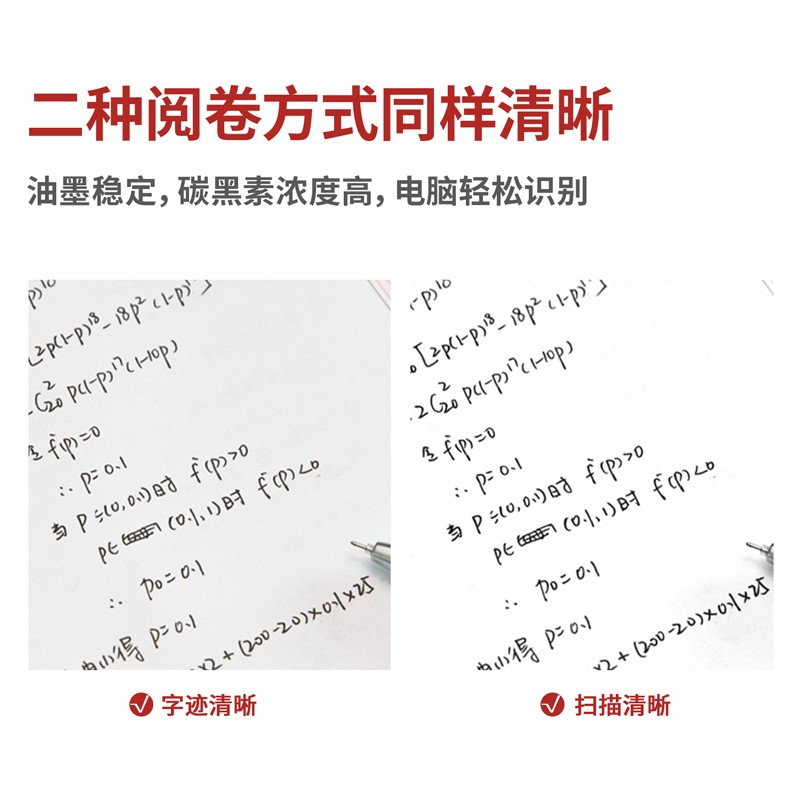 二种阅卷方式同样清晰
油墨稳定，碳黑素浓度高，电脑轻松识别
-p)¹⁰
[2p(1-p)¹⁸-18p²(1-p)¹⁷]
2C²₂₀ p(1-p)¹⁷(1-10p)
f'(p)=0
∴ p=0.1
当 p∈(0,0.1)时 f'(p)>0
p∈ (0.1,1)时 f'(p)<0
∴ p₀=0.1
得 p=0.1
×2+(200-20)×0.1×25
(1-p)¹⁰
[2p(1-p)¹⁸-18p²(1-p)¹⁷]
.2C²₂₀ p(1-p)¹⁷(1-10p)
f'(p)=0
∴ p=0.1
当 p∈(0,0.1)时 f'(p)>0
p∈ (0.1,1)时 f'(p)<0
∴ p₀=0.1
得 p=0.1
×2+(200-20)×0.1×25
字迹清晰
扫描清晰